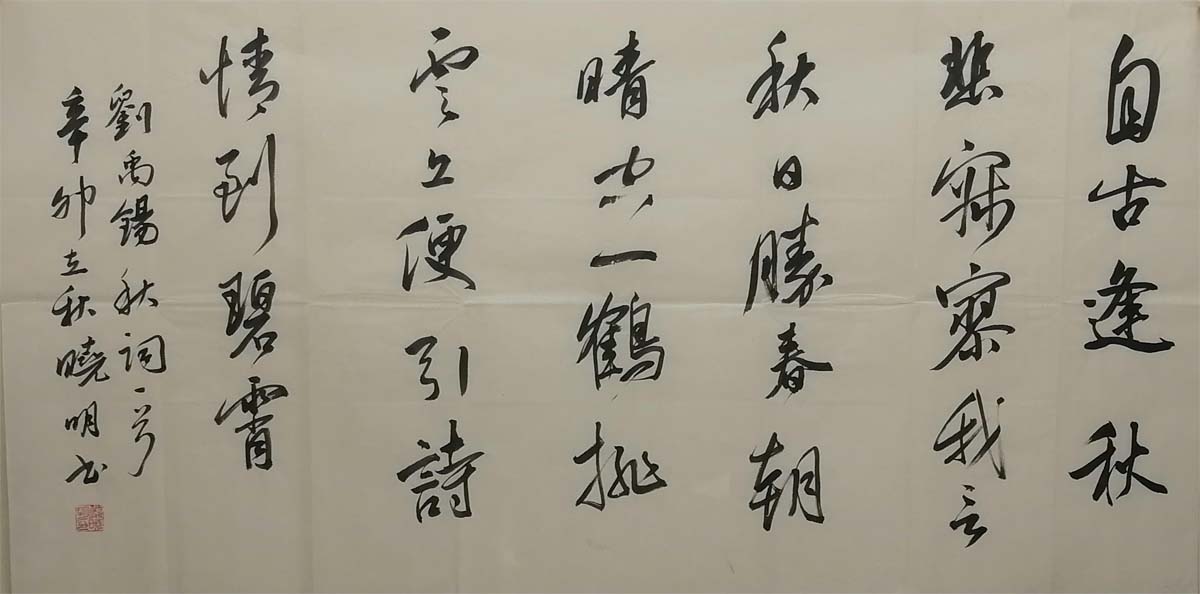 自古逢秋
悲寂寥我言
秋日勝春朝
晴空一鶴排
雲上便引詩
情到碧霄
劉禹錫秋詞一首
辛卯立秋曉明书